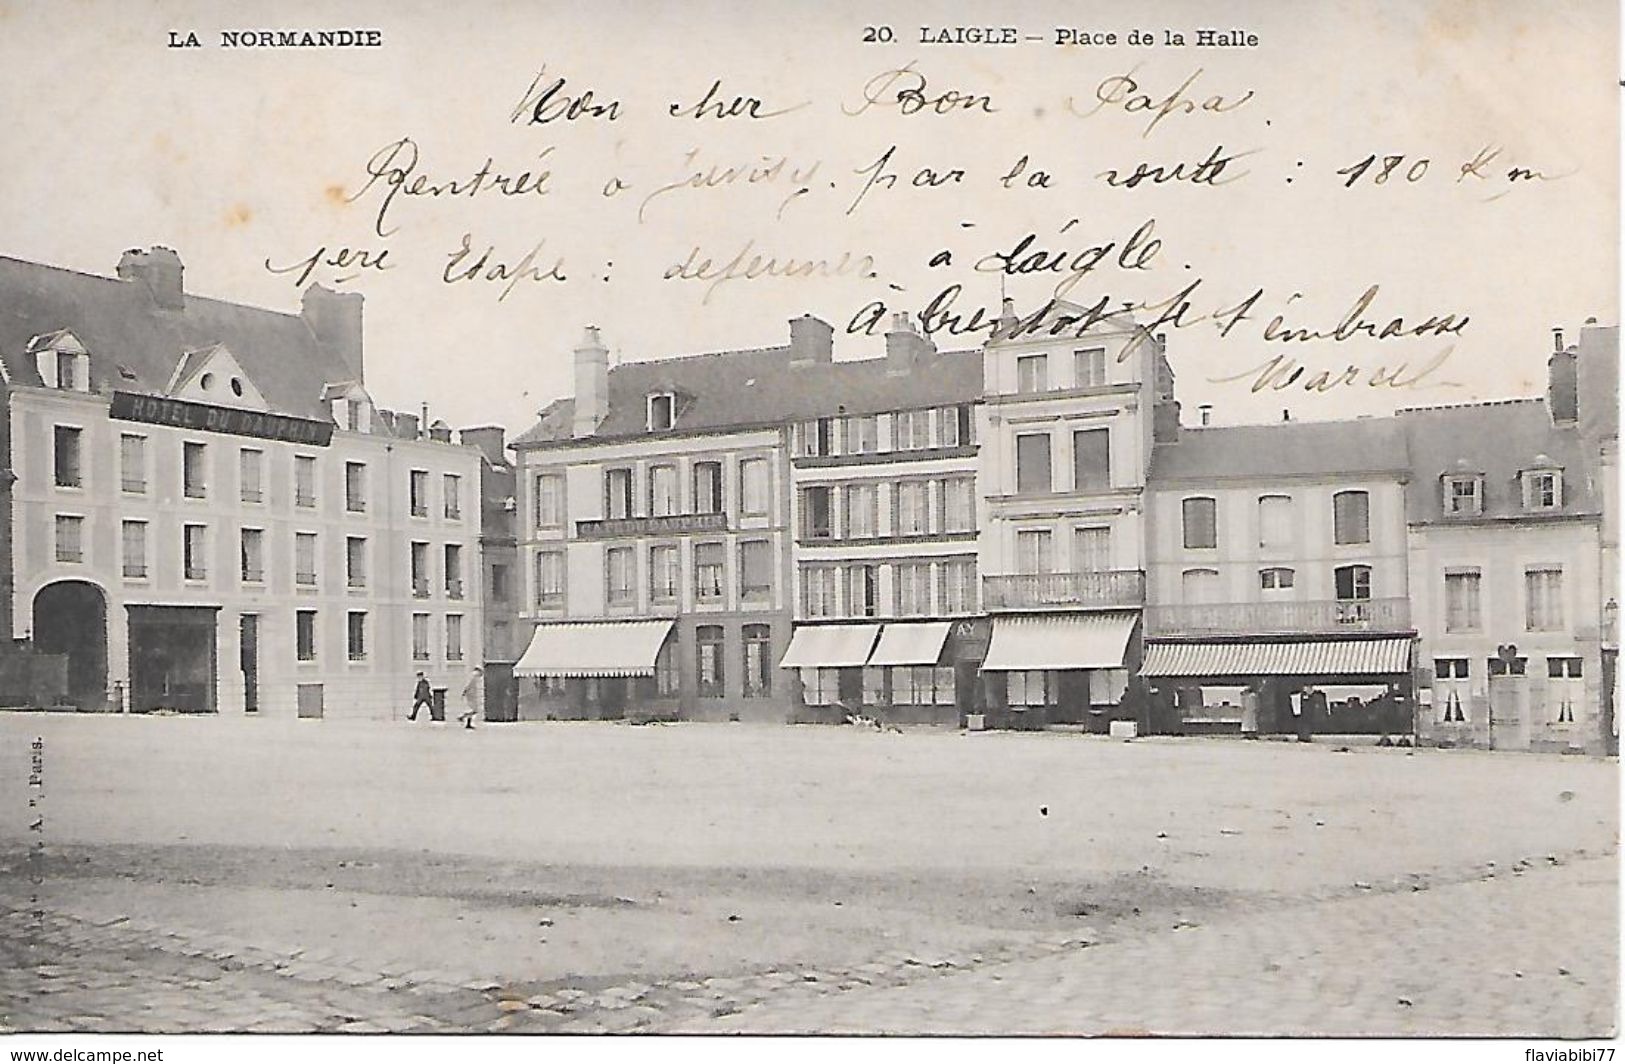 LA NORMANDIE
20. LAIGLE — Place de la Halle
Mon cher Bon Papa.
Rentrée à Juvisy. par la route : 180 Km
1ere Etape : dejeuner à Laigle.
à bientot je t'embrasse
Marcel
HOTEL DU DAUPHIN
DU DAUPHIN
AY
A. ", Paris.
www.delcampe.net
flaviabibi77